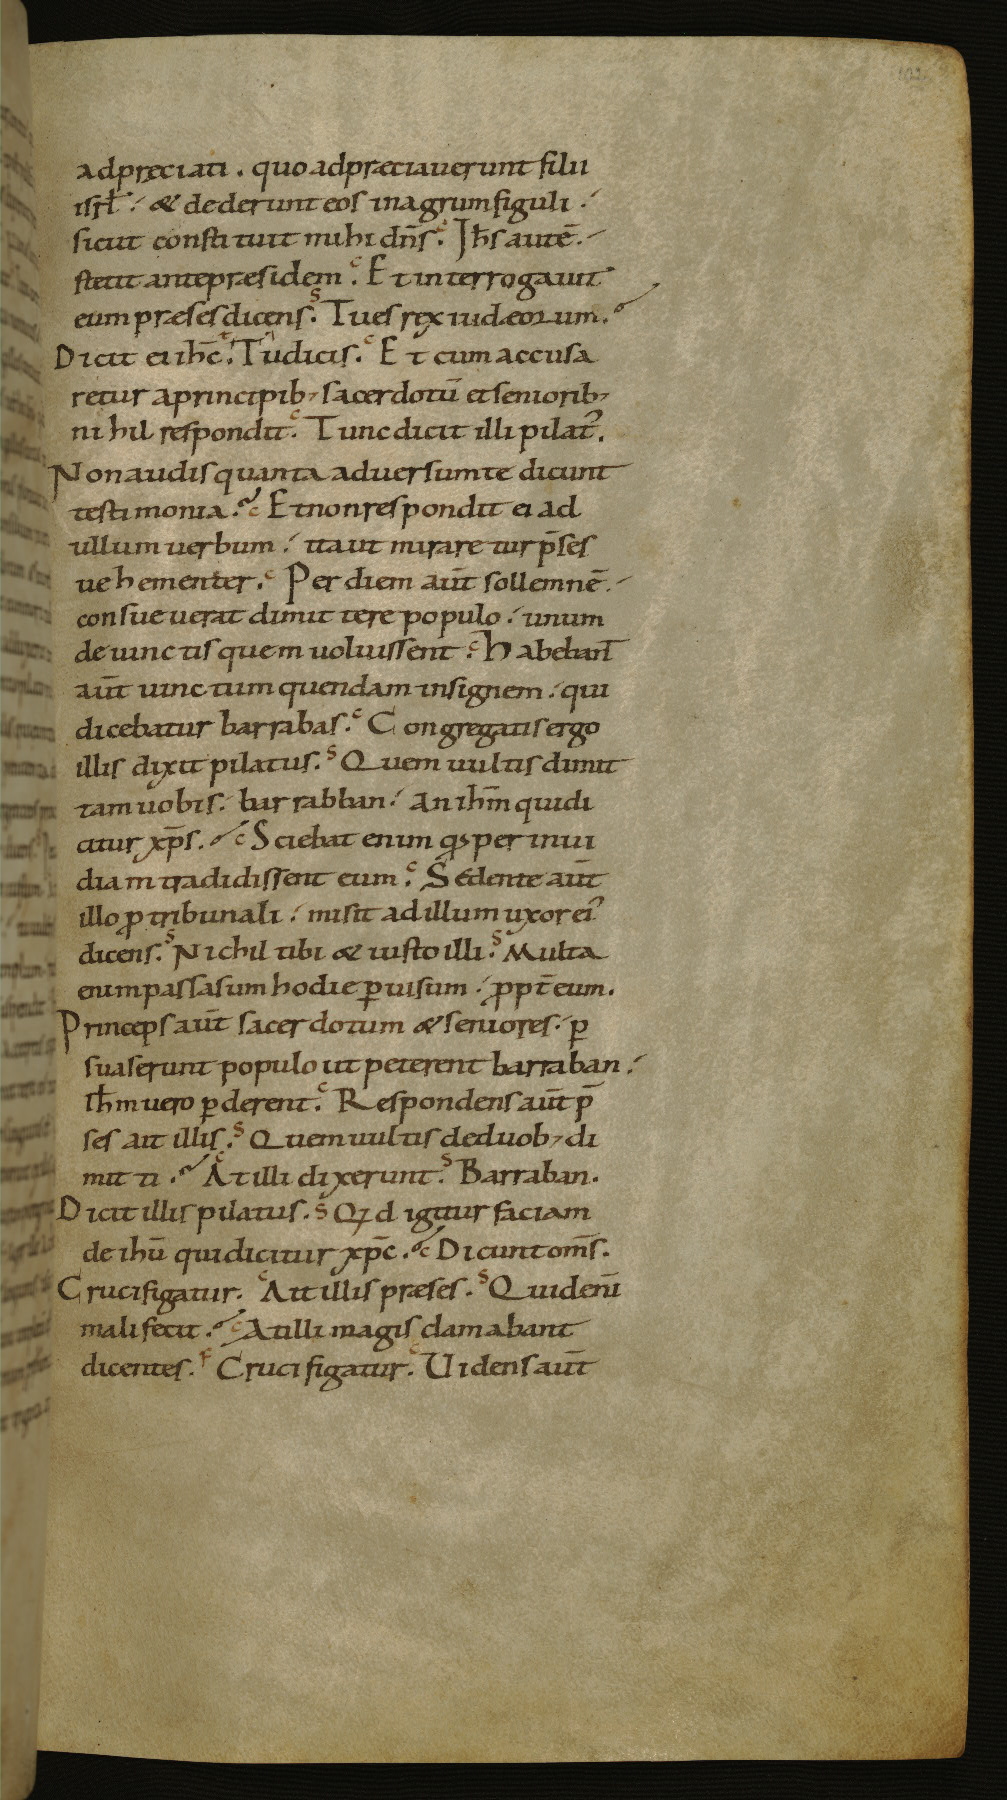 adpręciati. quo adpræciauerunt filii
isrł: & dederunt eos in agrum figuli:
sicut constituit mihi dn̄s. Ih̄s autē.
stetit ante præsidem. Et interrogauit
eum præses dicens. Tu es rex iudæorum.
Dicit ei ih̄c. Tu dicis. Et cum accusa
retur a principib; sacerdotū et seniorib;
nihil respondit. Tunc dicit illi pilat᾽.
Non audis quanta aduersum te dicunt
testimonia. Et non respondit ei ad
ullum uerbum: ita ut miraretur p̄ses
uehementer. Per diem aūt sollemnē.
consueuerat dimittere populo: unum
de uinctis quem uoluissent. Habeban̄t
aūt uinctum quendam insignem: qui
dicebatur barrabas. Congregatis ergo
illis dixit pilatus. Quem uultis dimit
tam uobis: barrabban: an ih̄m qui di
citur xp̄s. Sciebat enim qs per inui
diam tradidissent eum. Sedente aūt
illo ꝓ tribunali: misit ad illum uxor ei᾽
dicens. Nichil tibi & iusto illi. Multa
enim passa sum hodie ꝑ uisum: ꝓpt̄ eum.
Princeps aūt sacerdotum & seniores: ꝑ
suaserunt populo ut peterent barraban:
ih̄m uero ꝑderent. Respondens aūt p̄
ses ait illis. Quem uultis de duob; di
mitti. At illi dixerunt. Barraban.
Dicit illis pilatus. Qd igitur faciam
de ihū qui dicitur xp̄c. Dicunt om̄s.
Crucifigatur. Ait illis præses. Quid eni̅
mali fecit. At illi magis clamabant
dicentes. Crucifigatur. Uidens aūt